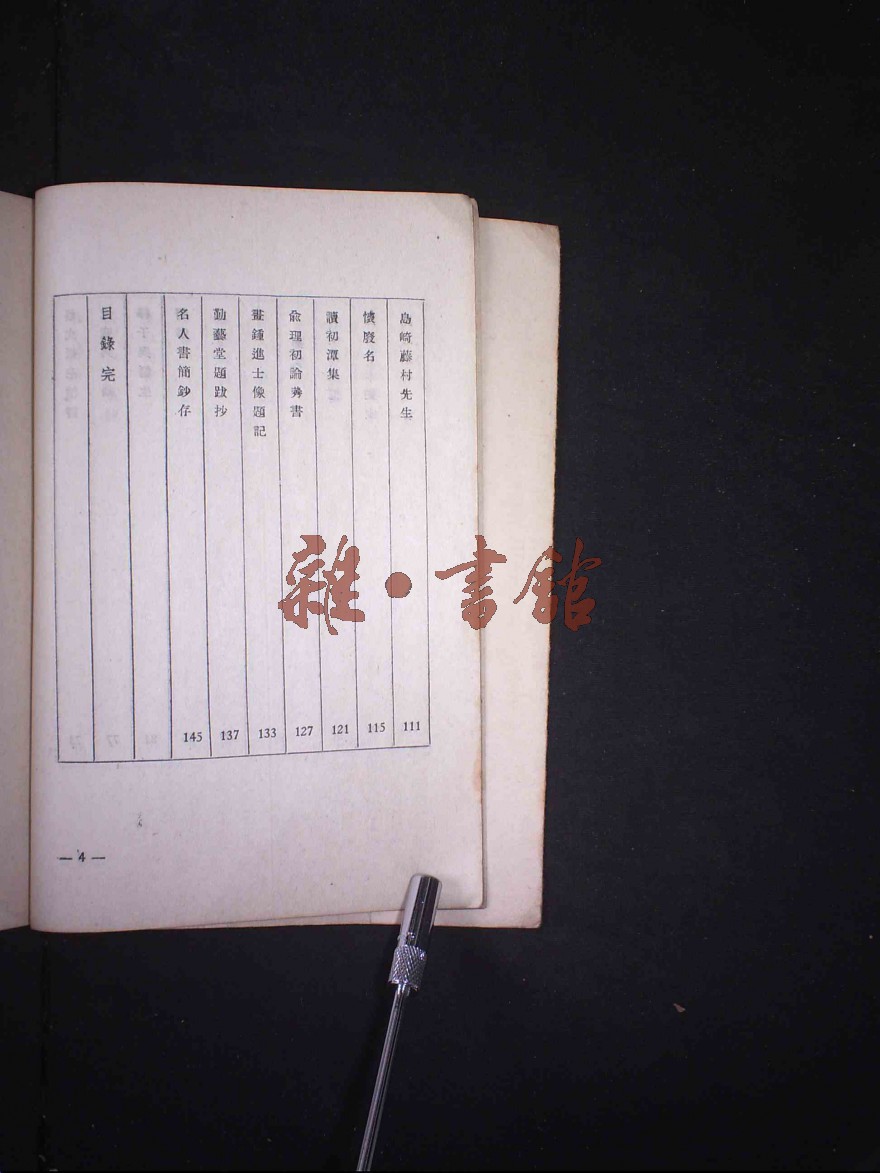 島崎藤村先生 111
懷廢名 115
讀初潭集 121
俞理初論莠書 127
畫鍾進士像題記 133
勤藝堂題跋抄 137
名人書簡鈔存 145
目錄完
— 4 —
雜·書館